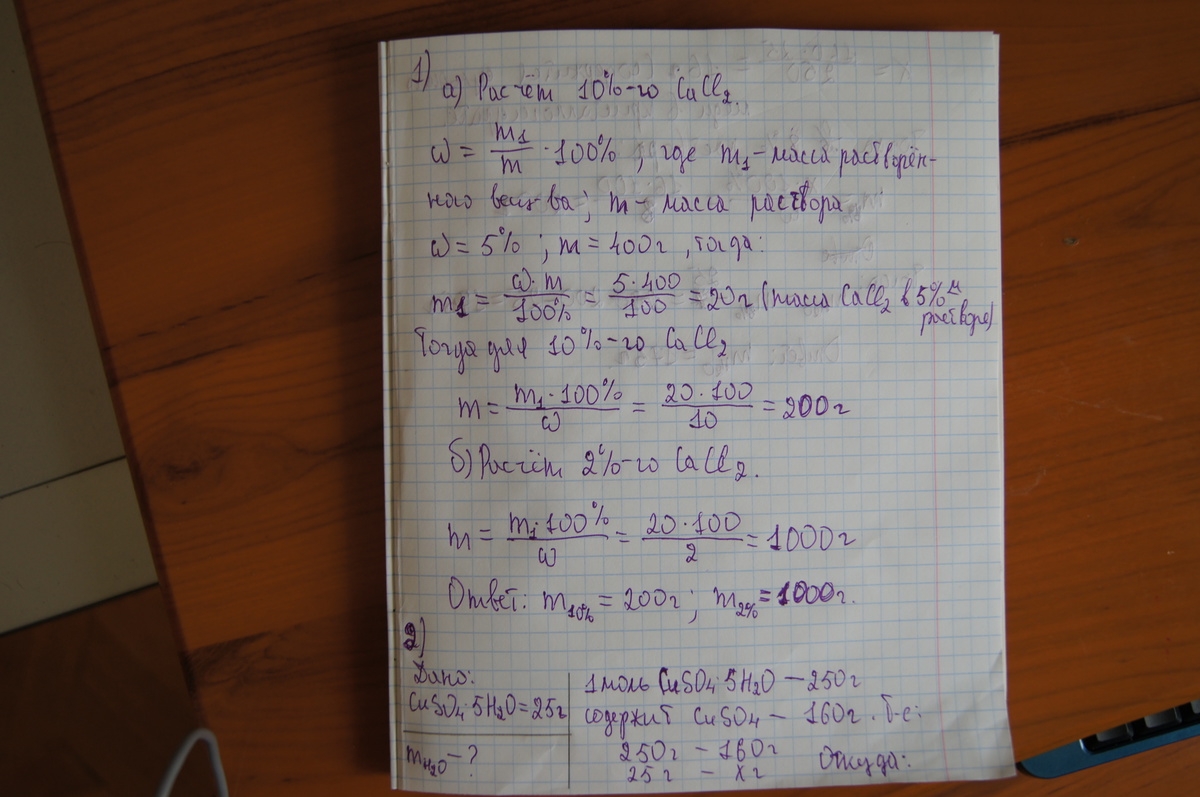 1)
а) Расчёт 10%-го CaCl₂.
ω = m₁/m · 100% ; где m₁ - масса растворён-
ного вещ-ва; m - масса раствора
ω = 5% ; m = 400г , тогда:
m₁ = ω·m/100% = 5·400/100 = 20г (масса CaCl₂ в 5%м растворе)
Тогда для 10%-го CaCl₂
m = m₁·100%/ω = 20·100/10 = 200г
б) Расчёт 2%-го CaCl₂.
m = m₁·100%/ω = 20·100/2 = 1000г
Ответ: m₁₀% = 200г; m₂% = 1000г.
2)
Дано:
CuSO₄·5H₂O = 25г
mH₂O - ?
1 моль CuSO₄·5H₂O — 250г
содержит CuSO₄ — 160г. Т-е:
250г — 160г
25г — хг Откуда: